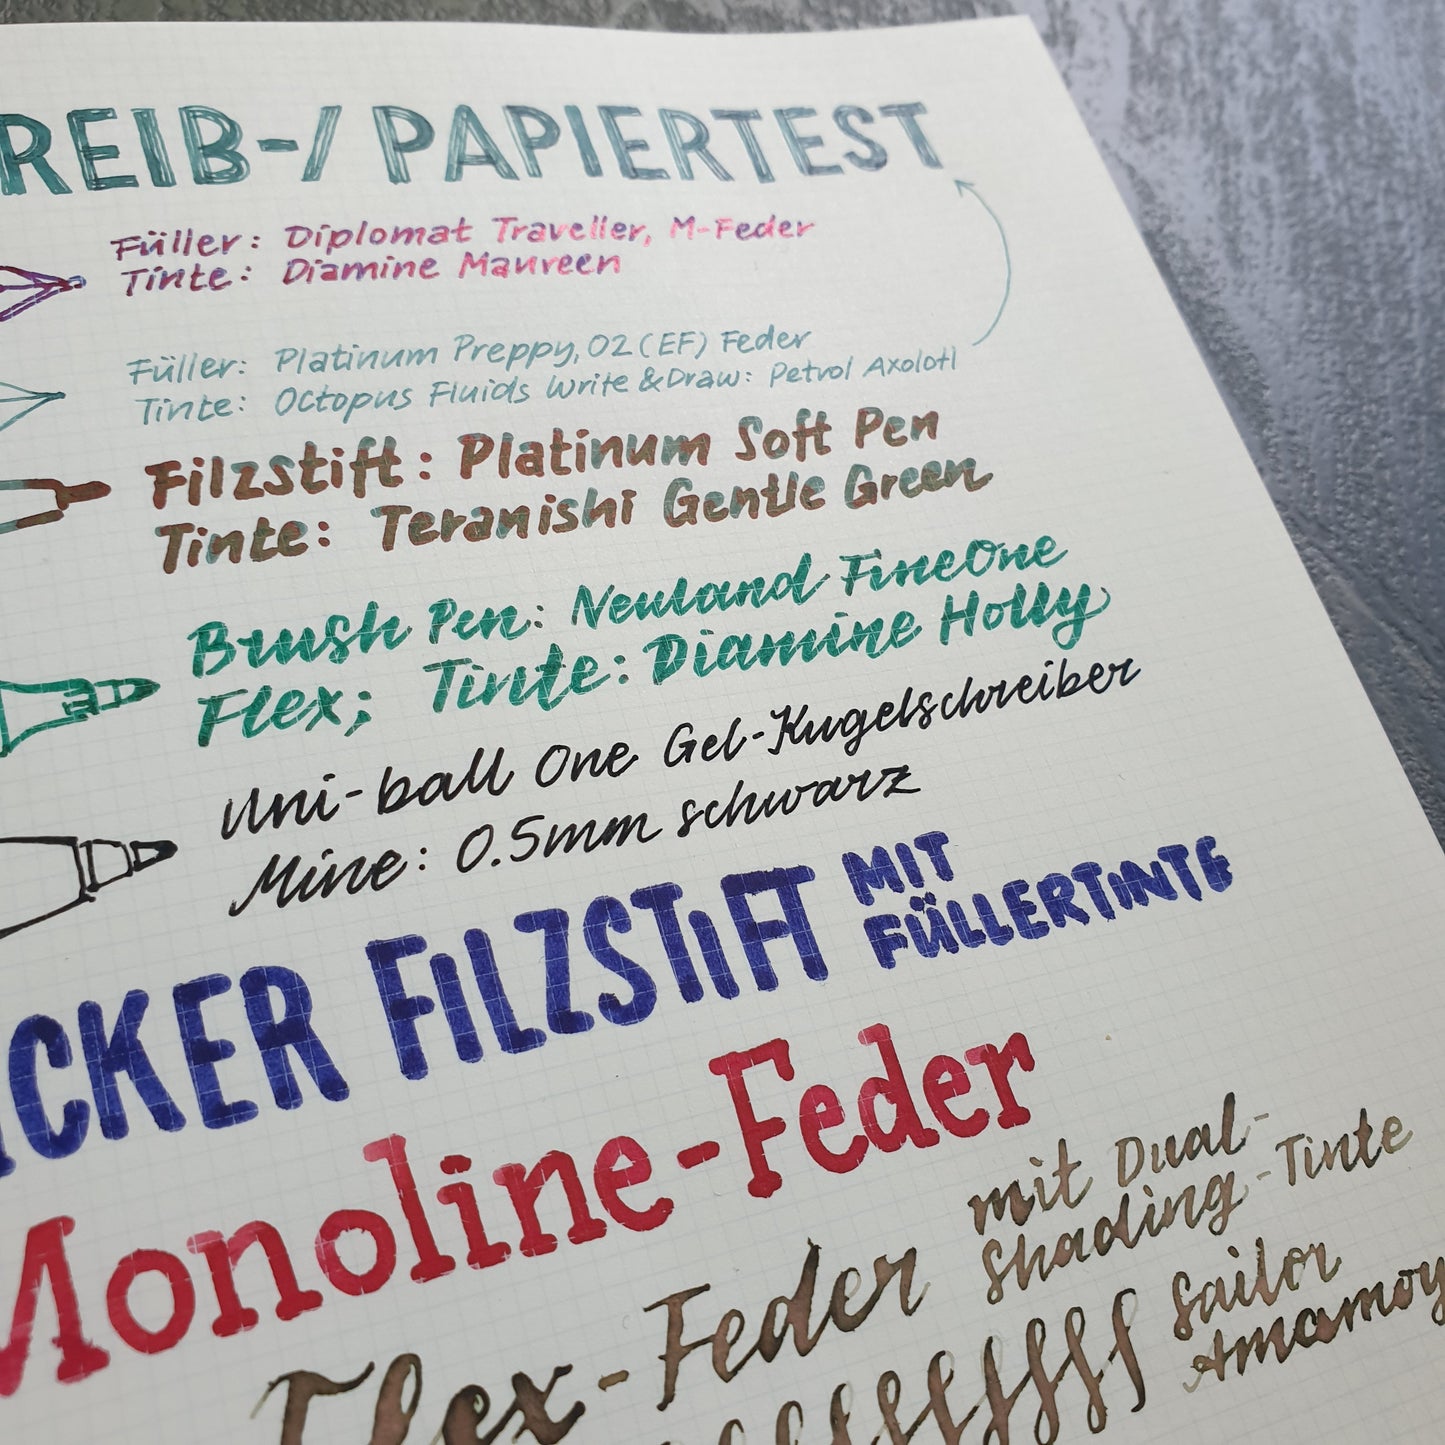 REIB-/PAPIERTEST
Füller: Diplomat Traveller, M-Feder
Tinte: Diamine Maureen
Füller: Platinum Preppy, 02 (EF) Feder
Tinte: Octopus Fluids Write & Draw: Petrol Axolotl
Filzstift: Platinum Soft Pen
Tinte: Teranishi Gentle Green
Brush Pen: Neuland FineOne
Flex; Tinte: Diamine Holly
Uni-ball One Gel-Kugelschreiber
Mine: 0.5mm schwarz
ICKER FILZSTIFT MIT
FÜLLERTINTE
Monoline-Feder
Flex-Feder mit Dual-
Shading-Tinte
Sailor
Amamoy